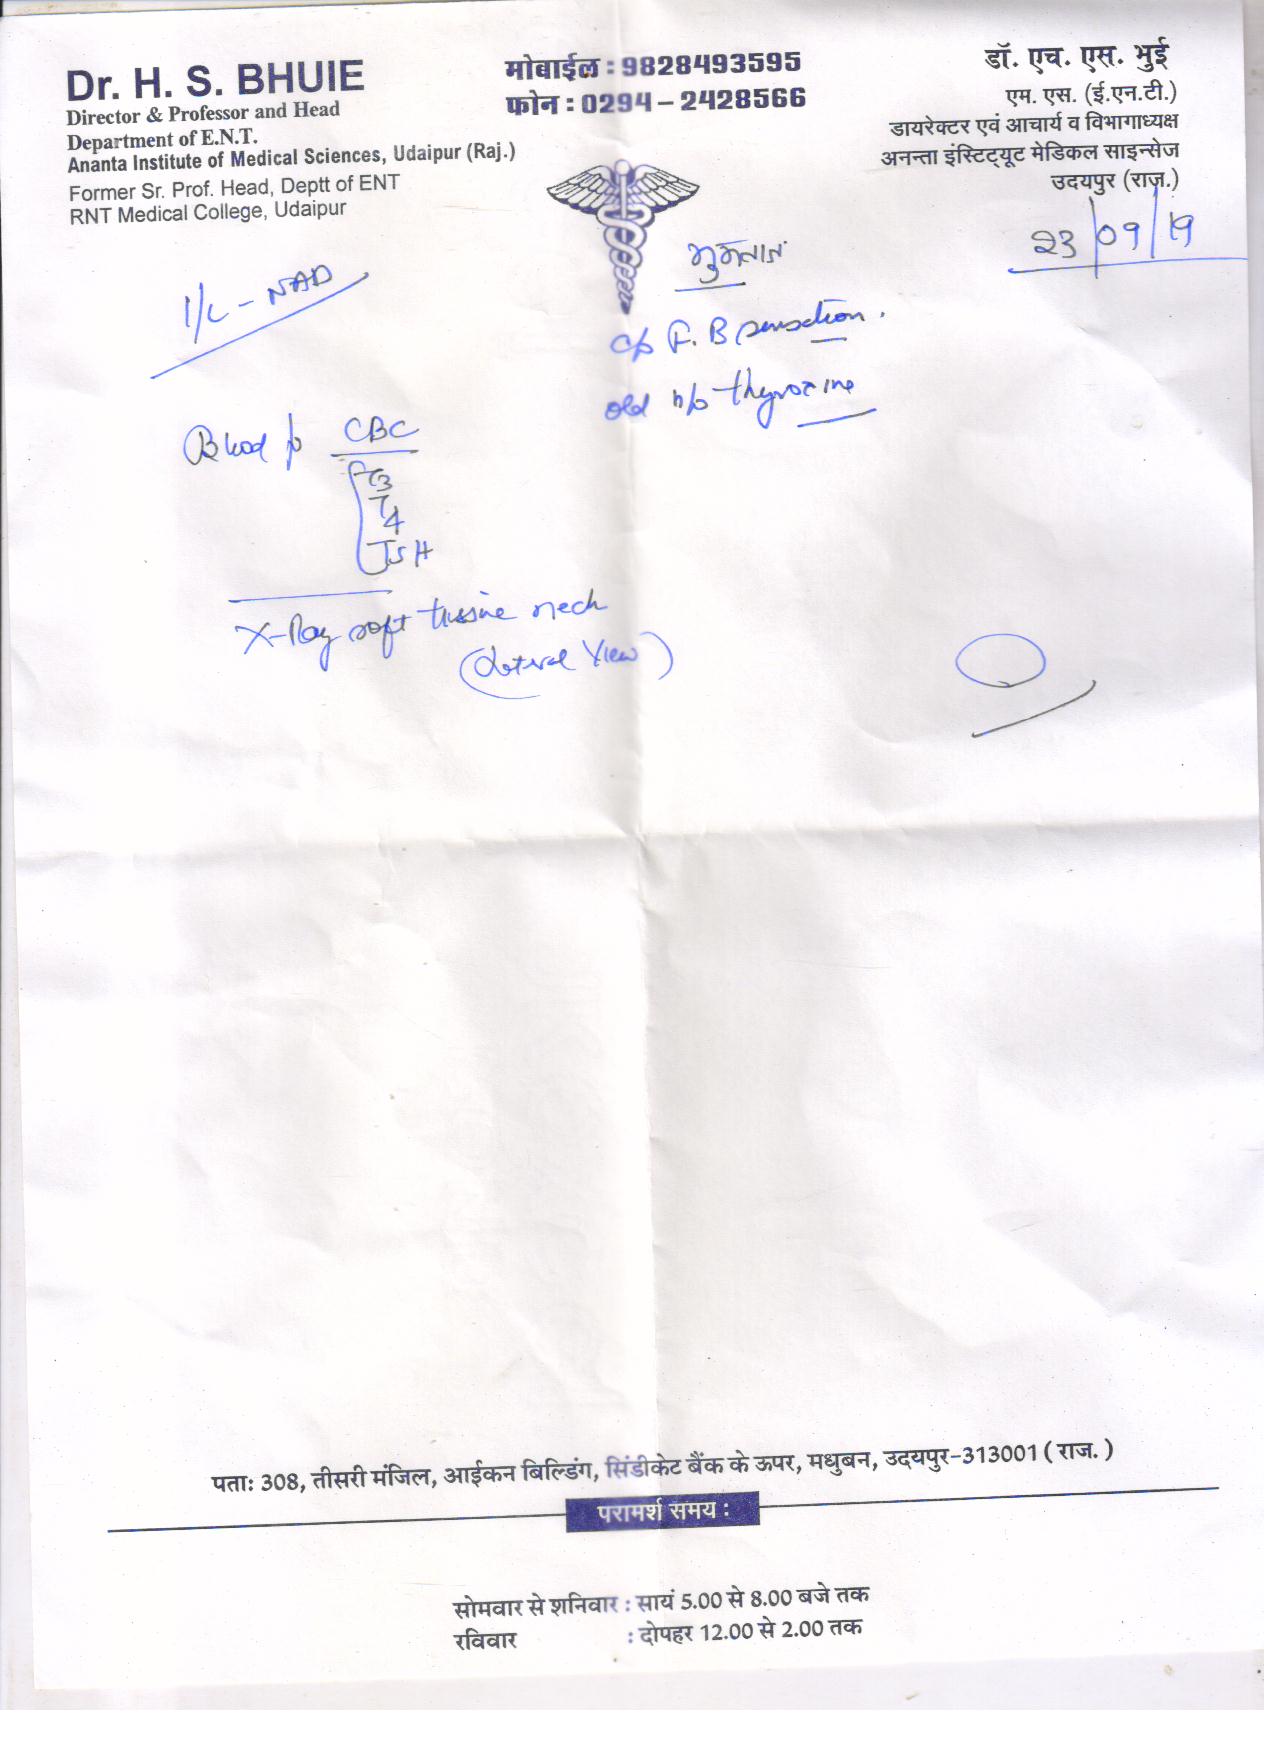 Dr. H. S. BHUIE
Director & Professor and Head
Department of E.N.T.
Ananta Institute of Medical Sciences, Udaipur (Raj.)
Former Sr. Prof. Head, Deptt of ENT
RNT Medical College, Udaipur
मोबाईल : 9828493595
फोन : 0294 – 2428566
डॉ. एच. एस. भुई
एम. एस. (ई.एन.टी.)
डायरेक्टर एवं आचार्य व विभागाध्यक्ष
अनन्ता इंस्टिट्यूट मेडिकल साइन्सेज
उदयपुर (राज.)
23/09/19
I/L - NAD
c/o F. B sensation.
old h/o thyroxine
Blood for CBC
T3
T4
TSH
X-Ray soft tissue neck
(Lateral View)
पताः 308, तीसरी मंजिल, आईकन बिल्डिंग, सिंडीकेट बैंक के ऊपर, मधुबन, उदयपुर-313001 ( राज. )
परामर्श समय :
सोमवार से शनिवार : सायं 5.00 से 8.00 बजे तक
रविवार : दोपहर 12.00 से 2.00 तक